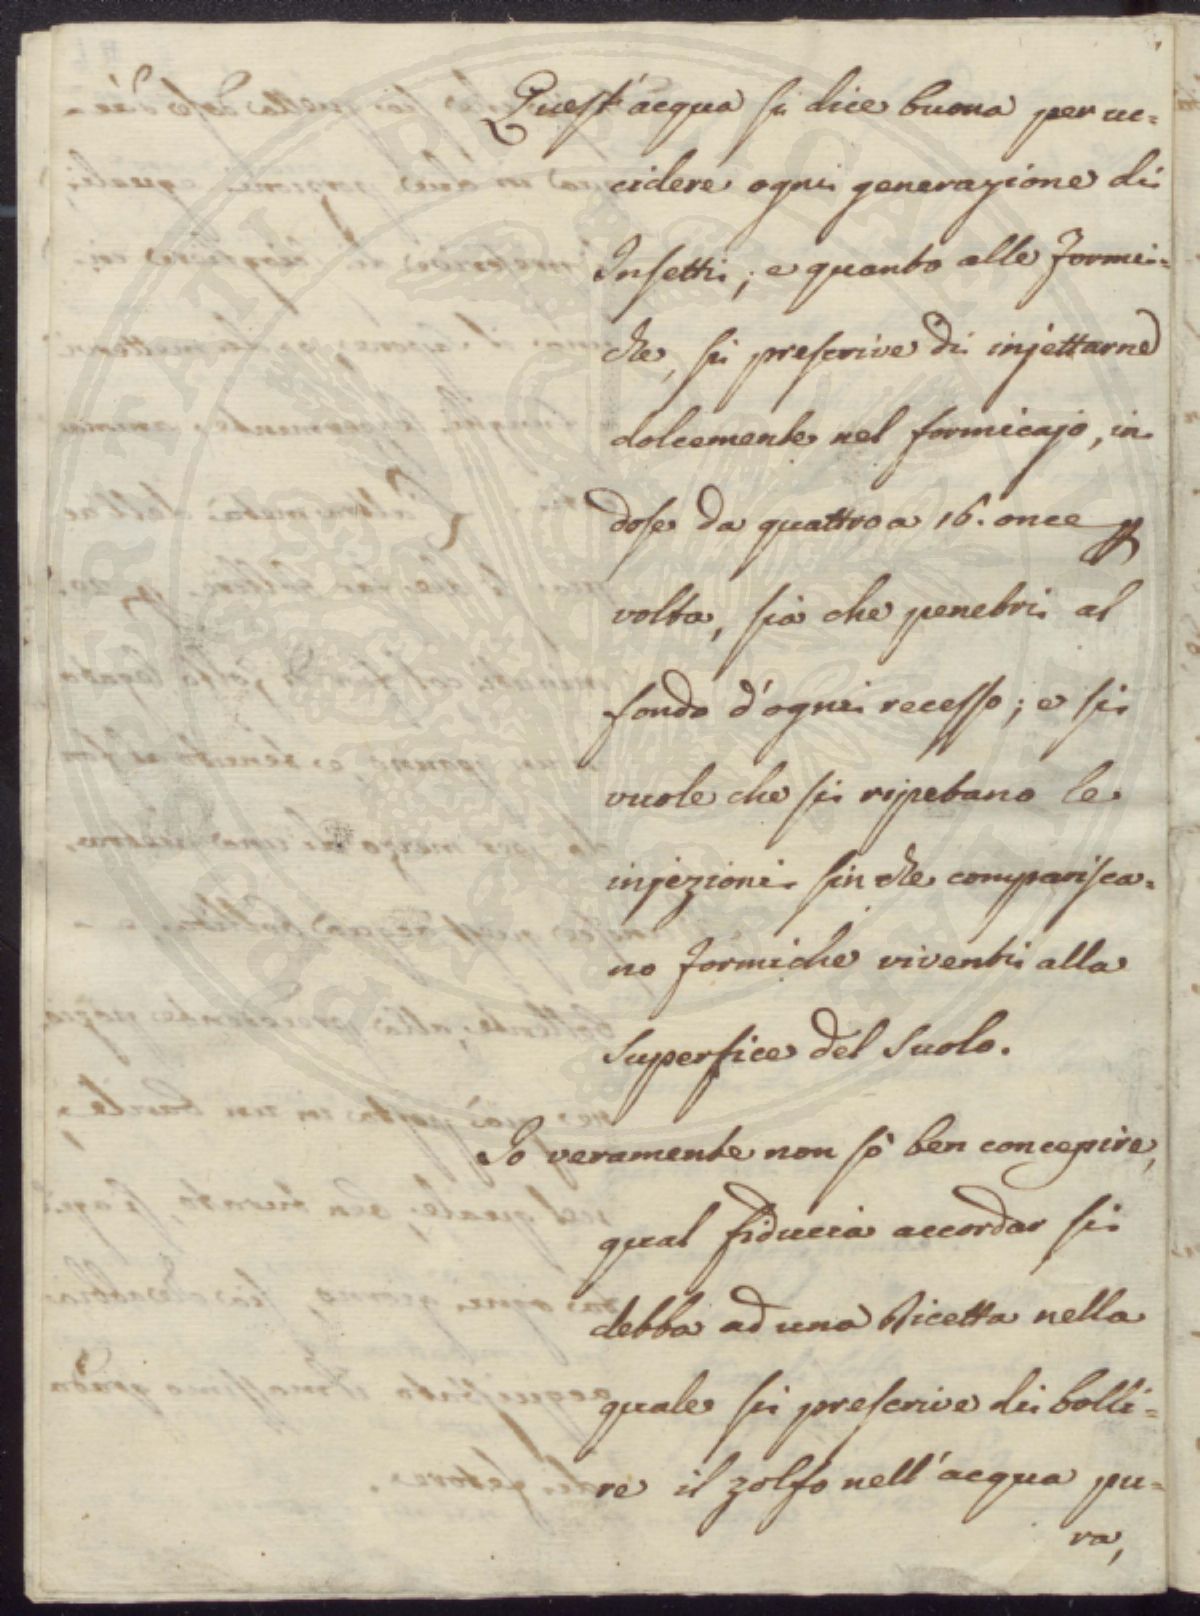 Quest'acqua si dice buona per uc=
cidere ogni generazione di
Insetti; e quanto alle Formi=
che, si prescrive di injettarne
dolcemente nel formicajo, in
dose da quattro a 16. once
volta, sia che penetri al
fondo d'ogni recesso; e si
vuole che si ripetano le
injezioni sin che comparisca=
no Formiche viventi alla
superfice del suolo.
Io veramente non sò ben concepire,
qual fiducia accordar si
debba ad una Ricetta nella
quale si prescrive di bolli=
re il zolfo nell'acqua pu=
ra,